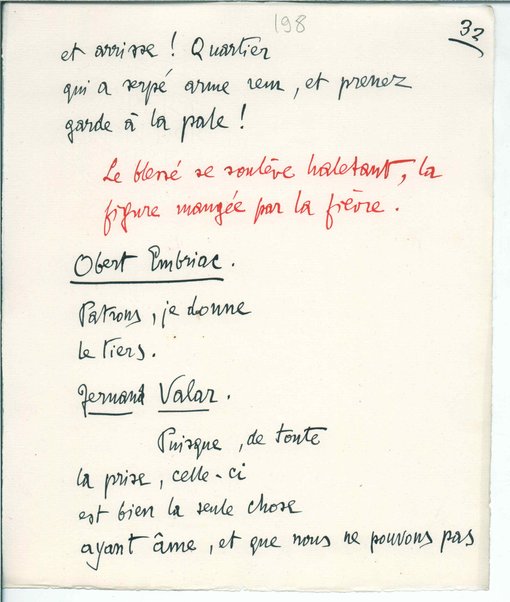 198
32
et arrisse ! Quartier
qui a serpé arme rem, et prenez
garde à la pale !
Le blessé se soulève haletant, la
figure mangée par la fièvre.
Obert Embriac.
Patrons, je donne
le tiers.
Fernand Valar.
Puisque, de toute
la prise, celle-ci
est bien la seule chose
ayant âme, et que nous ne pouvons pas